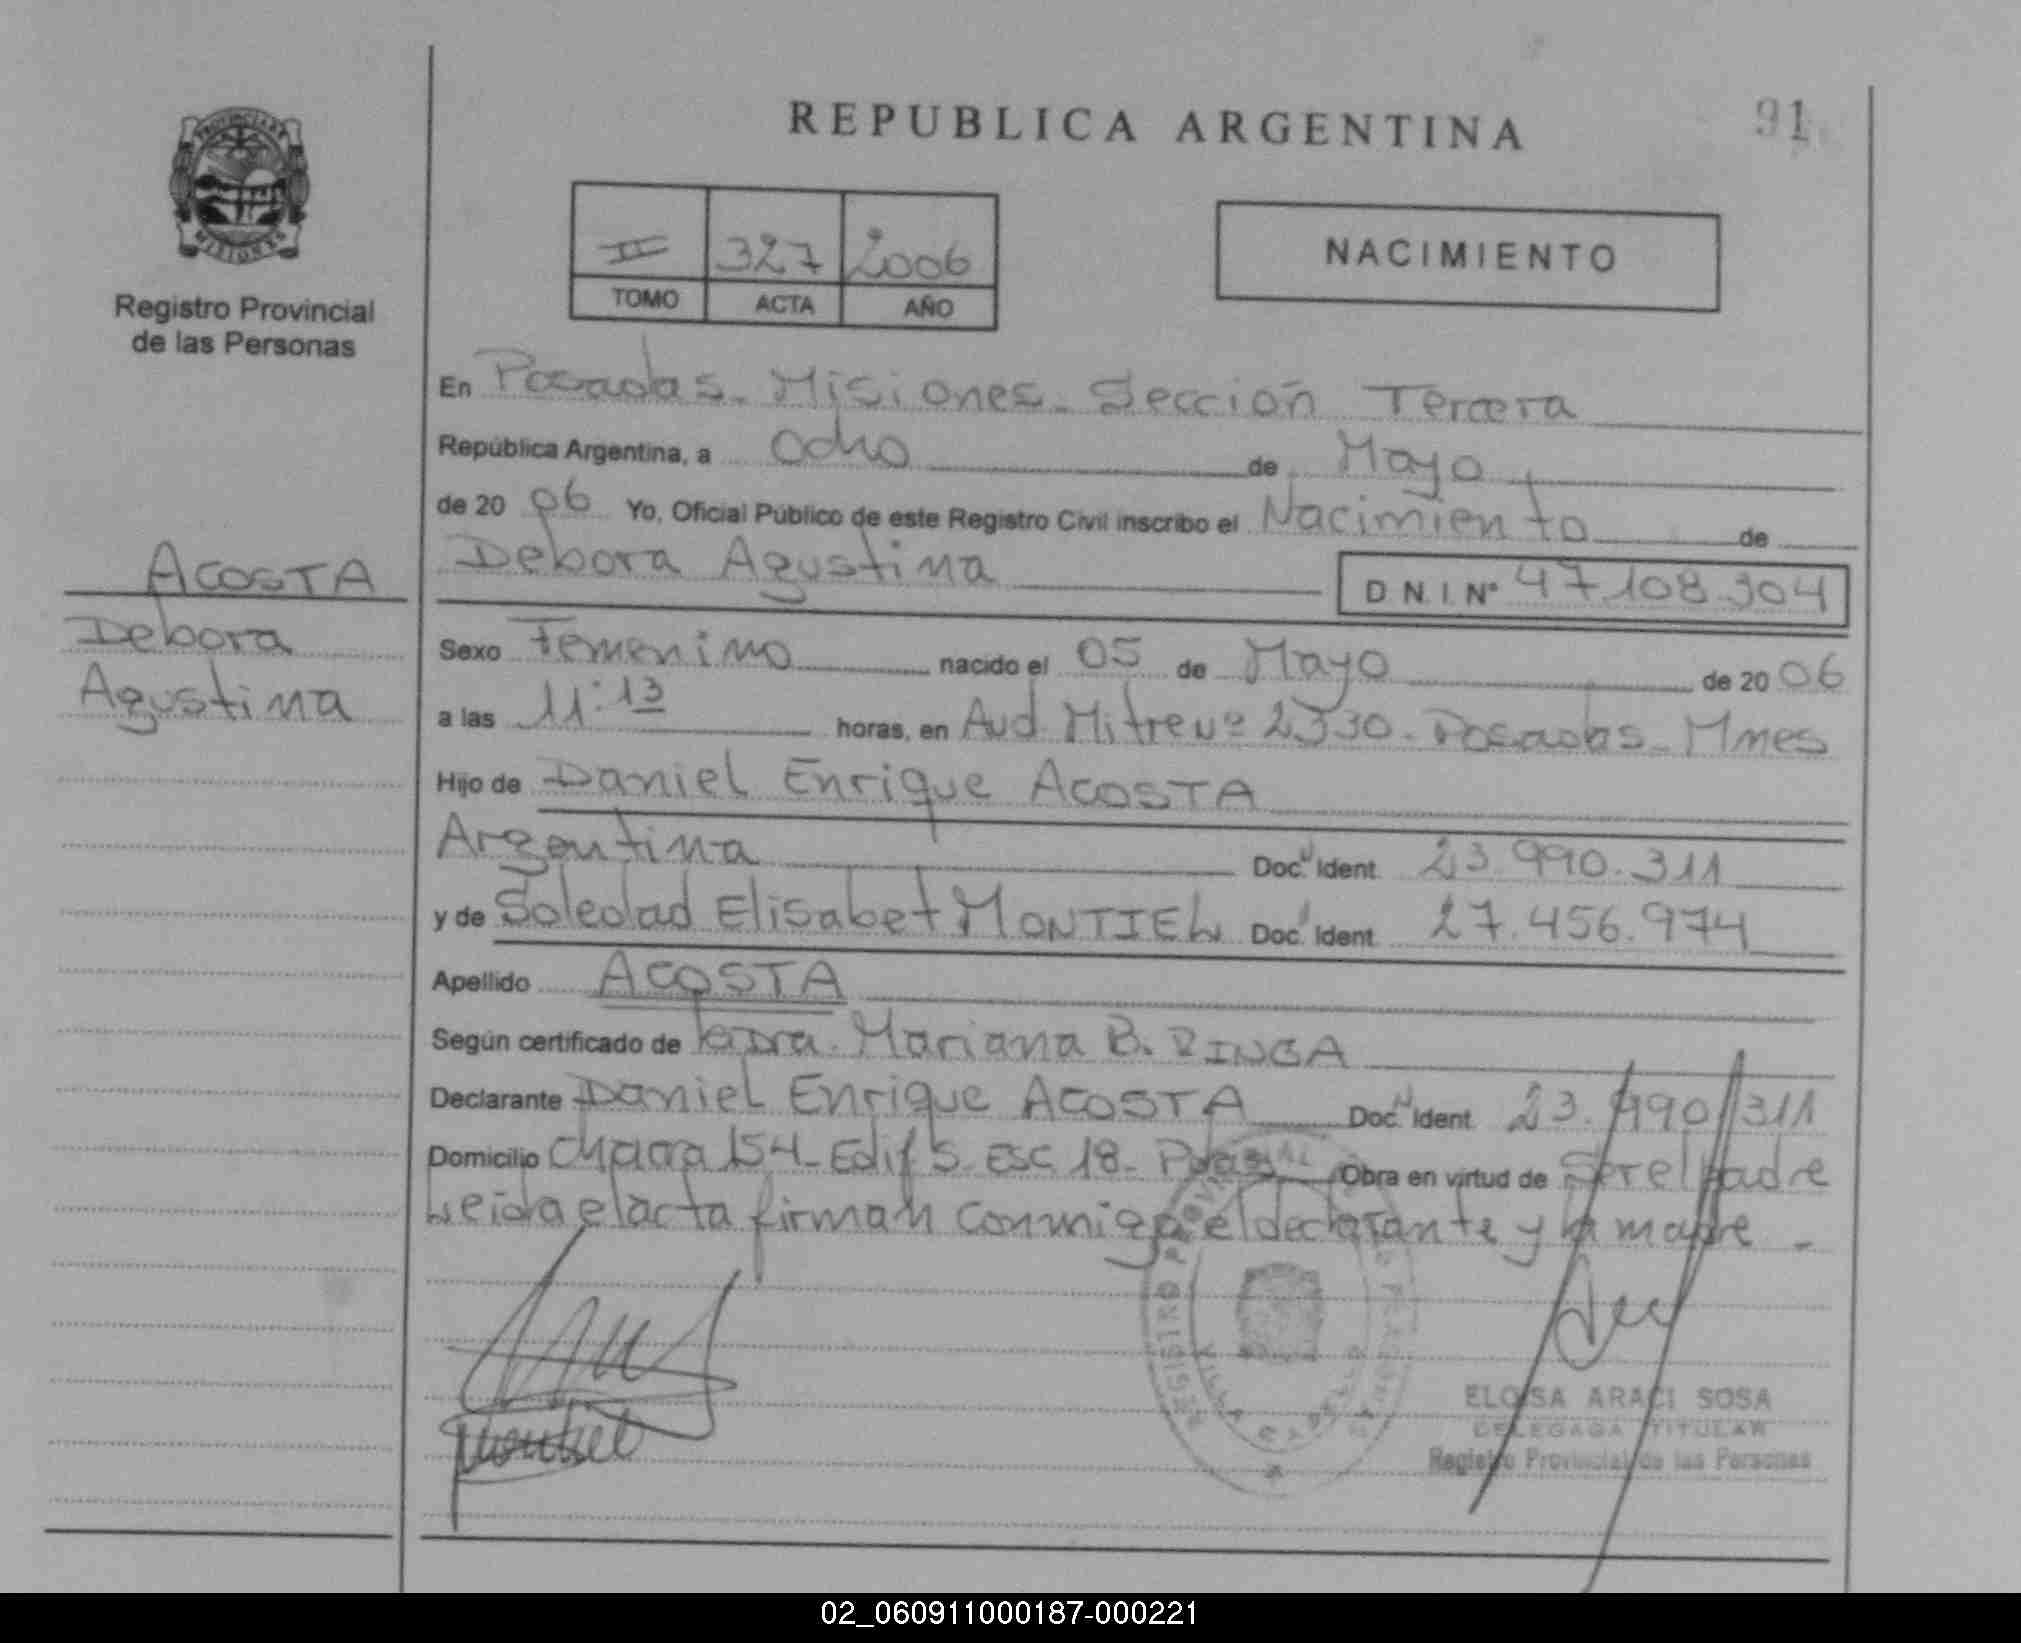 REPUBLICA ARGENTINA
91
PROVINCIA DE MISIONES
Registro Provincial
de las Personas
II 327 2006
TOMO ACTA AÑO
NACIMIENTO
En Posadas - Misiones - Sección Tercera
República Argentina, a Ocho de Mayo
de 20 06 Yo, Oficial Público de este Registro Civil inscribo el Nacimiento de
Debora Agustina D N.I. Nº 47.108.304
ACOSTA
Debora
Agustina
Sexo Femenino nacido el 05 de Mayo de 20 06
a las 11:13 horas, en Avd. Mitre Nº 2330 - Posadas - Mnes
Hijo de Daniel Enrique ACOSTA
Argentina Doc. Ident. 23.990.311
y de Soledad Elisabet MONTIEL Doc. Ident. 27.456.974
Apellido ACOSTA
Según certificado de la Dra. Mariana B.
Declarante Daniel Enrique ACOSTA Doc. Ident. 23.990.311
Domicilio Chacra 154 - Edif 5 - Esc 18 - Pdas Obra en virtud de Ser el padre
Leida el acta firman conmigo el declarante y la madre -
REGISTRO PROVINCIAL DE LAS PERSONAS
ELOISA ARACI SOSA
DELEGADA TITULAR
Registro Provincial de las Personas
02_060911000187-000221